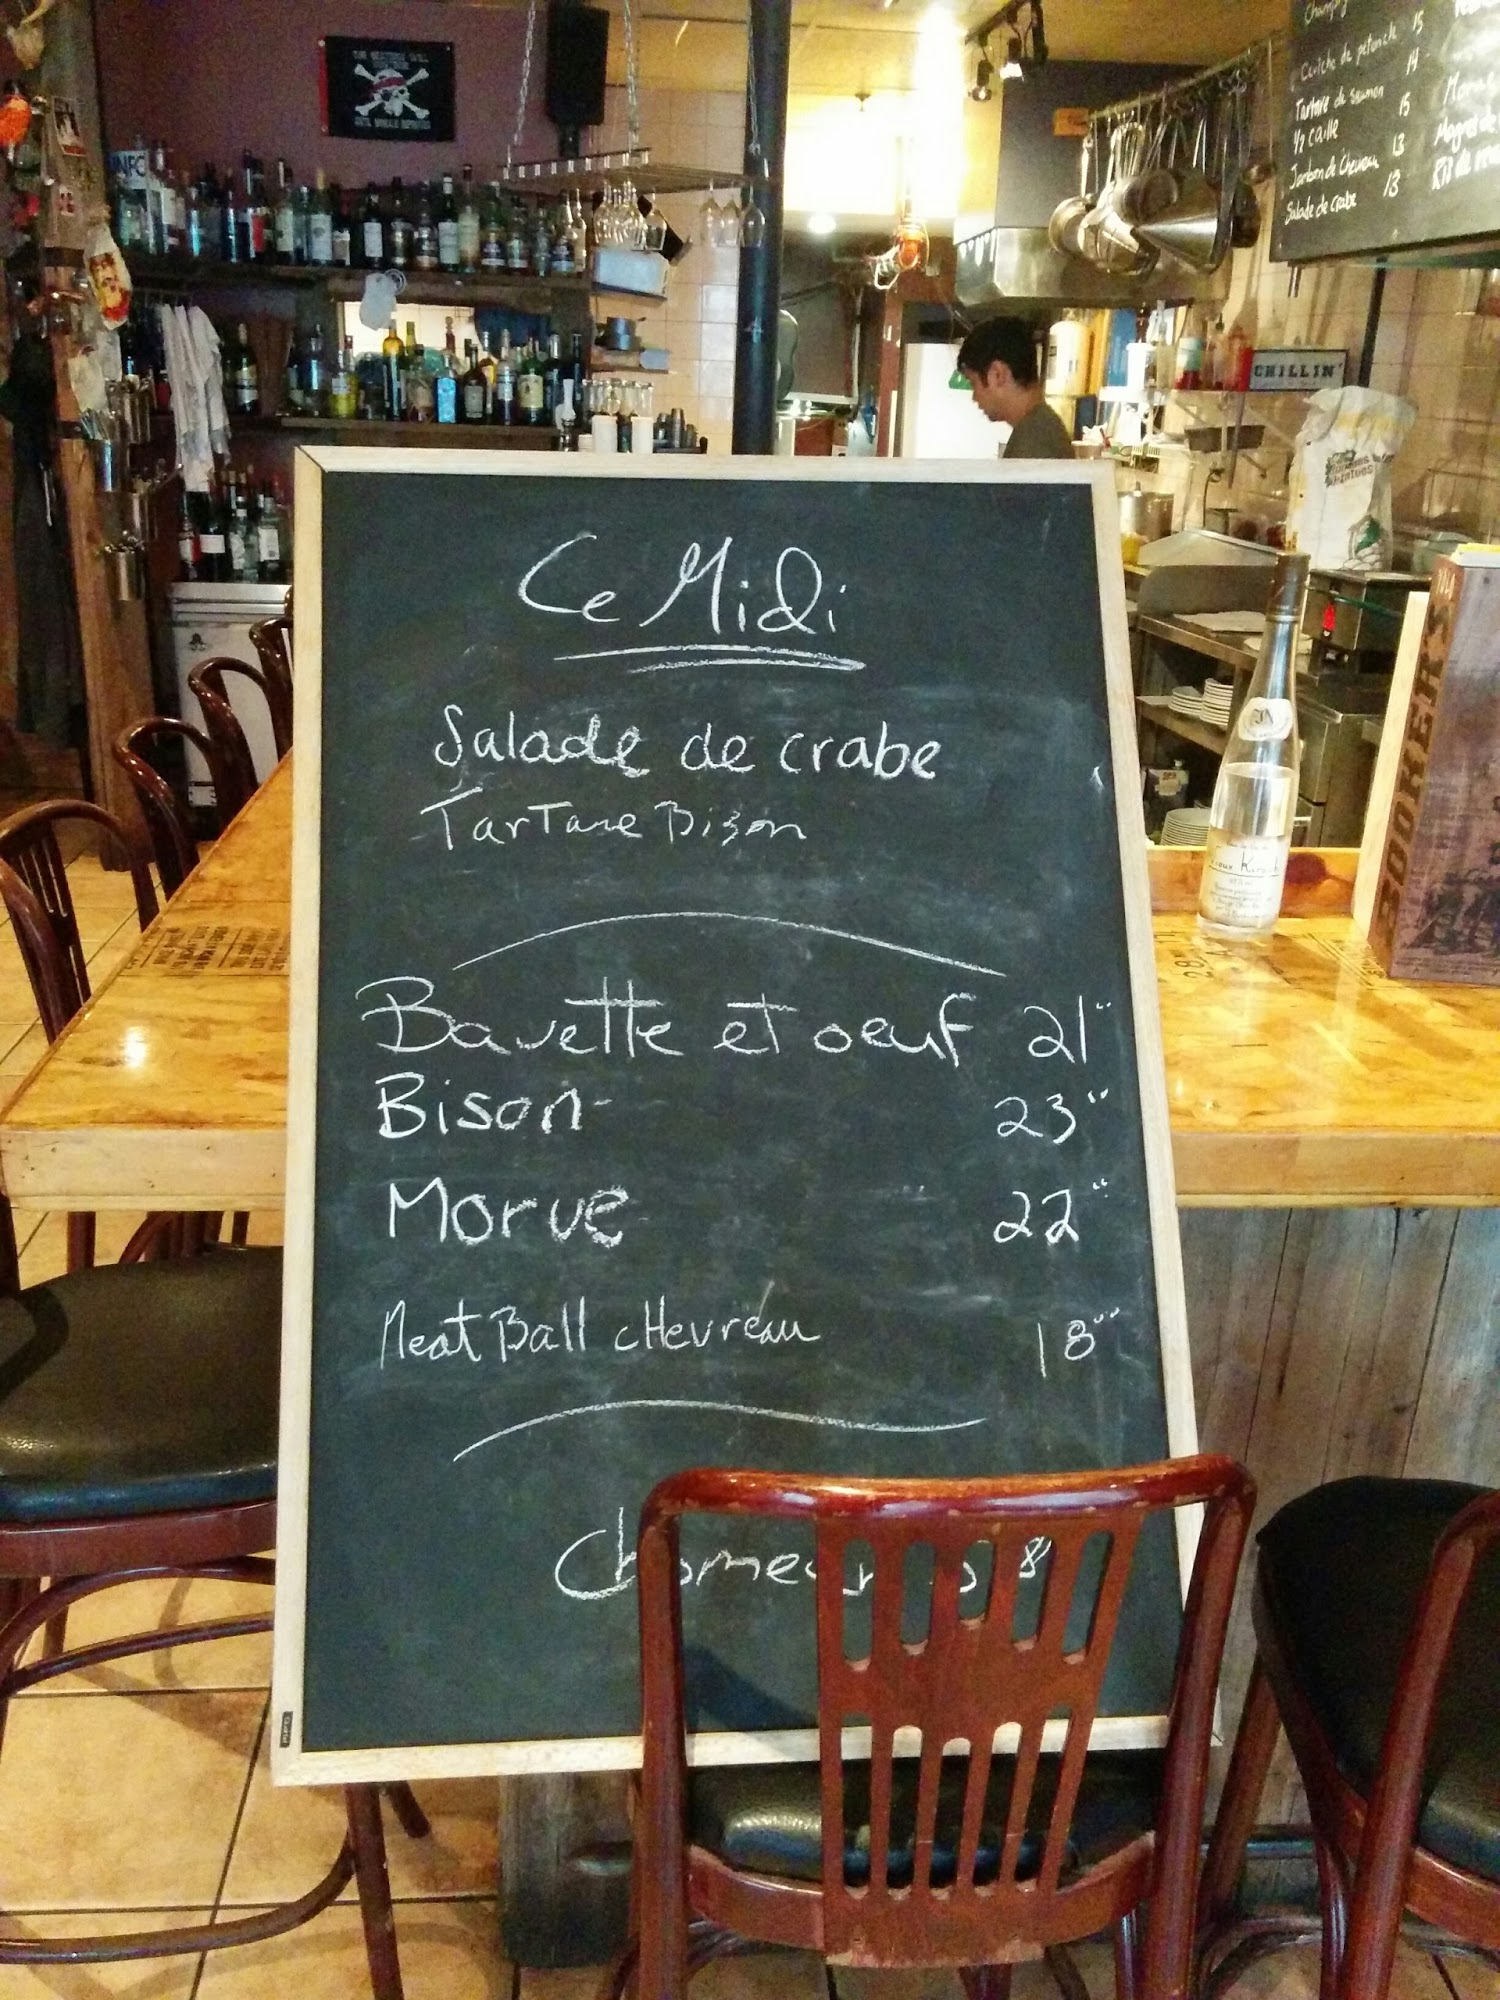 CHILLIN'
Ceviche de pétoncle 15
Tartare de saumon 14
1/2 caille 15
Jambon de Chevreau 13
Salade de crabe 13
Ce Midi
Salade de crabe
Tartare Bison
Bavette et oeuf 21""
Bison 23""
Morue 22""
Meat Ball cHevreau 18""
8
BOOKER'S